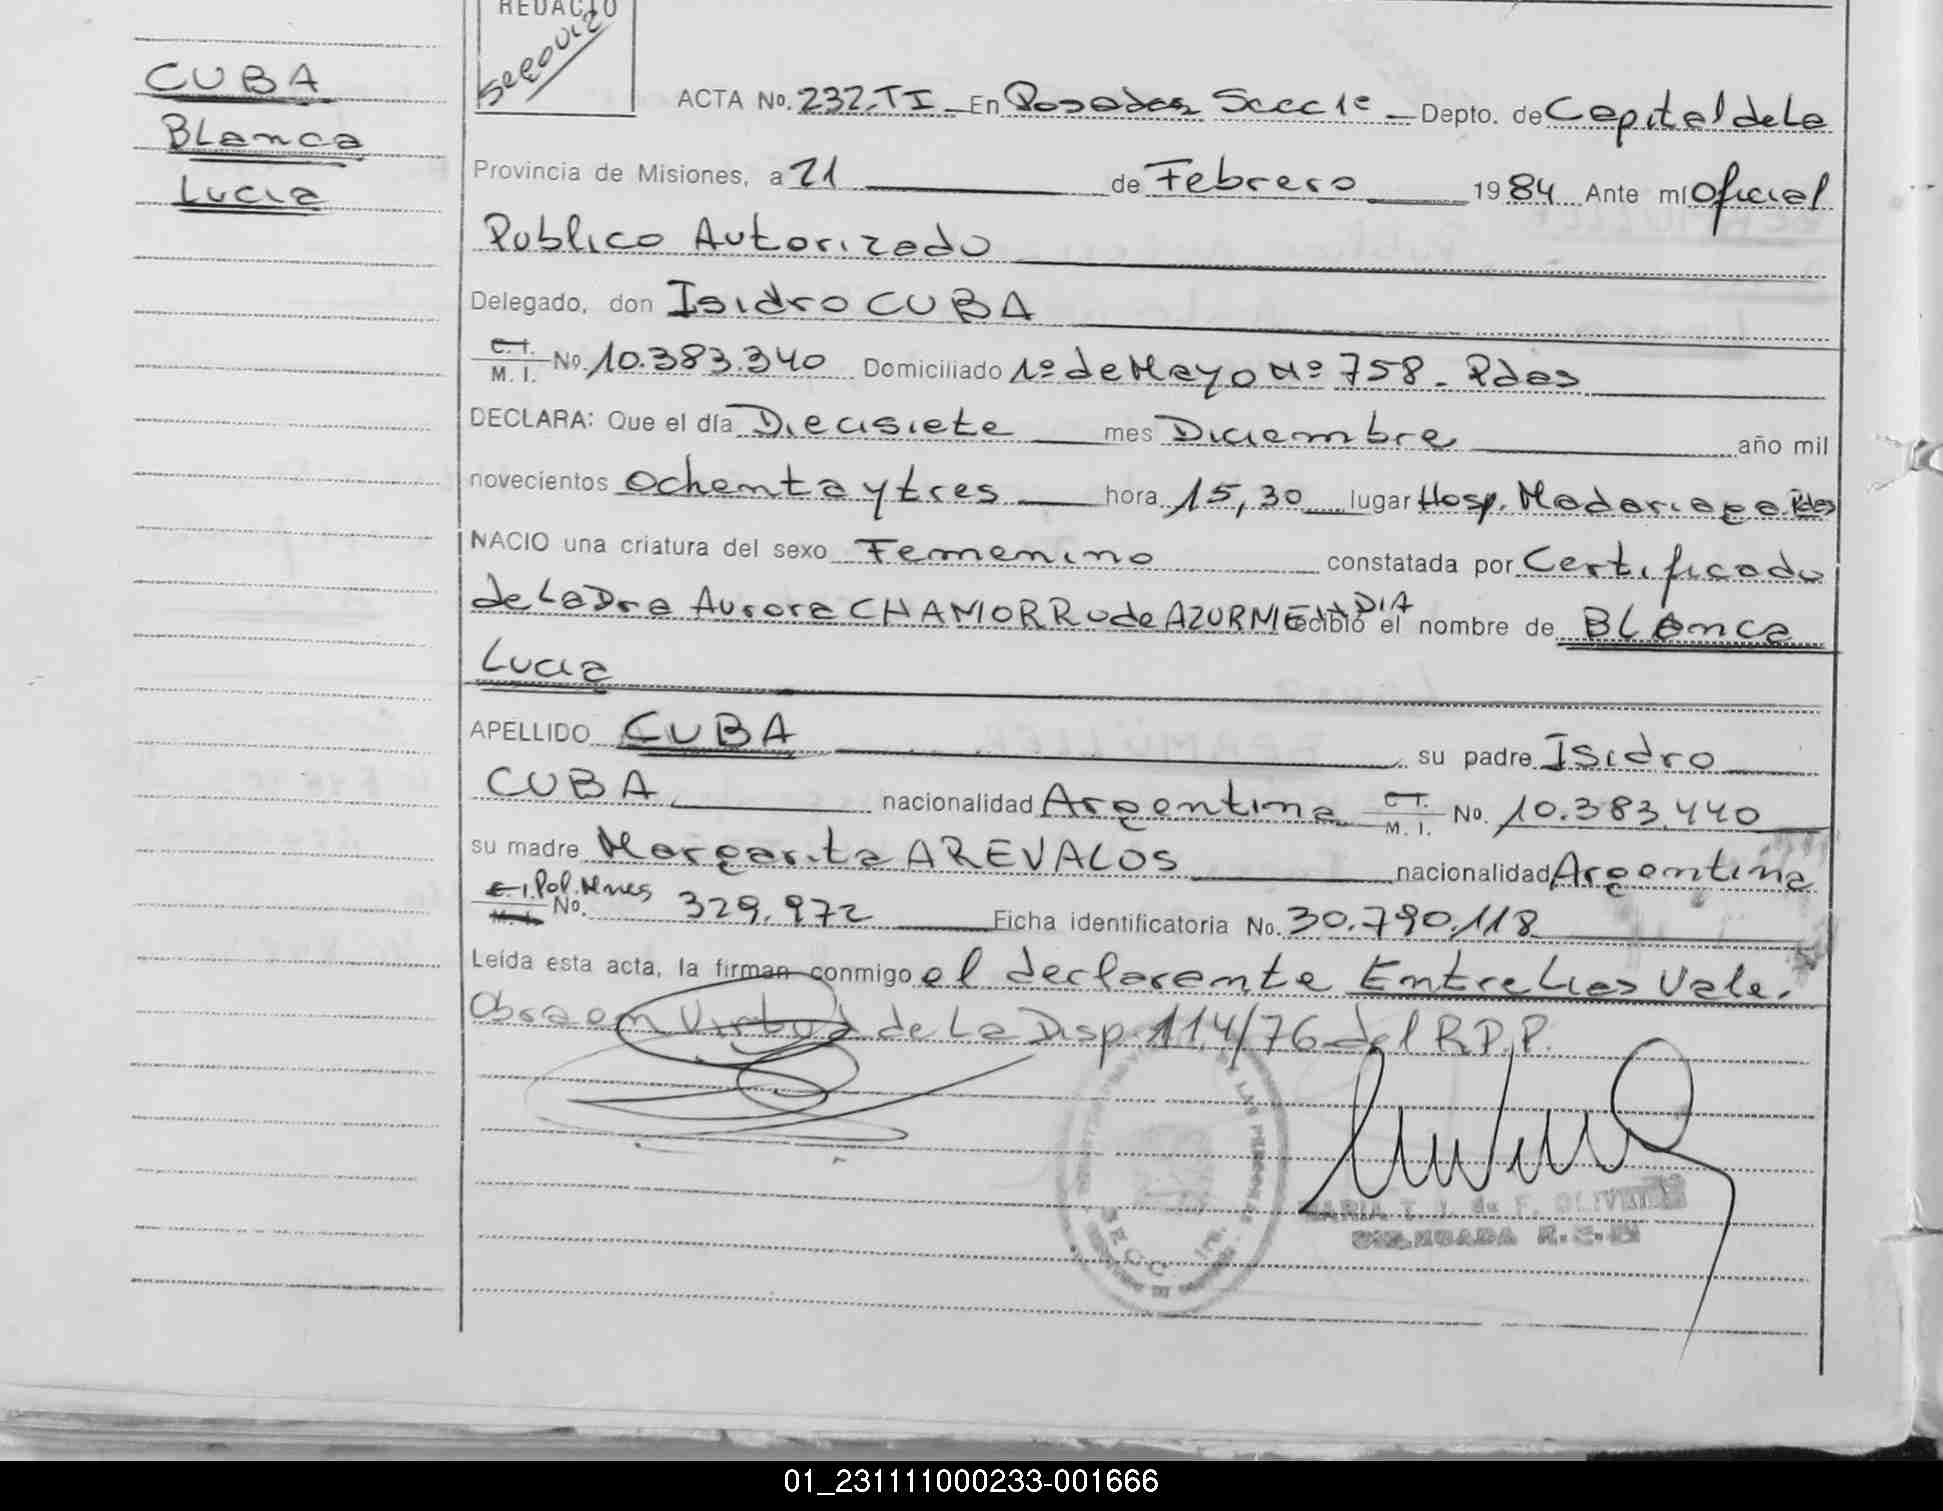 REDACTO
Segovia
CUBA
Blanca
Lucia
ACTA No. 232.TI En Posadas Secc 1º Depto. de Capital de la
Provincia de Misiones, a 21 de Febrero 1984 Ante mi Oficial
Publico Autorizado
Delegado, don Isidro CUBA
C.I. M. I. No. 10.383.340 Domiciliado 1º de Mayo Nº 758 - Pdas
DECLARA: Que el día Diecisiete mes Diciembre año mil
novecientos ochenta y tres hora 15,30 lugar Hosp. Madariaga. Pdas
NACIO una criatura del sexo Femenino constatada por Certificado
de la Dra Aurora CHAMORRO de AZURMENDIA recibió el nombre de Blanca
Lucia
APELLIDO CUBA su padre Isidro
CUBA nacionalidad Argentina C.I. M. I. No. 10.383.440
su madre Margarita AREVALOS nacionalidad Argentina
C.I. Pol. Mnes M. I. No. 329.972 Ficha identificatoria No. 30.790.118
Leída esta acta, la firman conmigo el declarante Entre Lias Vale.
Obra en Virtud de la Disp. 114/76 del R.P.P.
LAS PERSONAS
SECC. 1ra.
MARIA T. J. de F. OLIVEIRA
DELEGADA R.C.P.
01_231111000233-001666